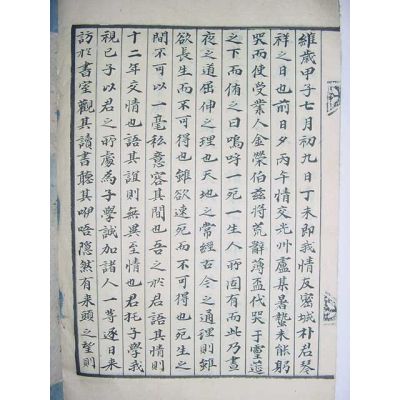 維歲甲子七月初九日丁未即我情友密城朴君琴
祥之日也前日夕丙午情交光州盧某暑蟄未能躬
哭而使受業人金榮伯玆將荒辭薄盃代哭于靈筵
之下而侑之曰嗚呼一死一生人所固有而此乃晝
夜之道屈伸之理也天地之常經古今之通理則雖
欲長生而不可得也雖欲速死而不可得也死生之
間不可以一毫私意容其間也吾之於君語其情則
十二年交情也語其誼則無異至情也君托子學我
視己子以君之所處為子學誠加諸人一等逐日來
訪於書室觀其讀書聽其咿唔隱然有來頭之望則